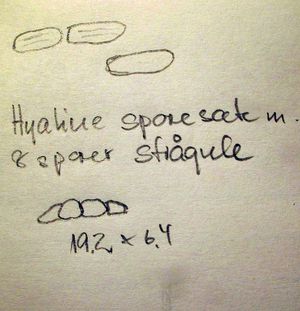 Hyaline sporesæk m.
8 sporer strågule
19,2 x 6,4